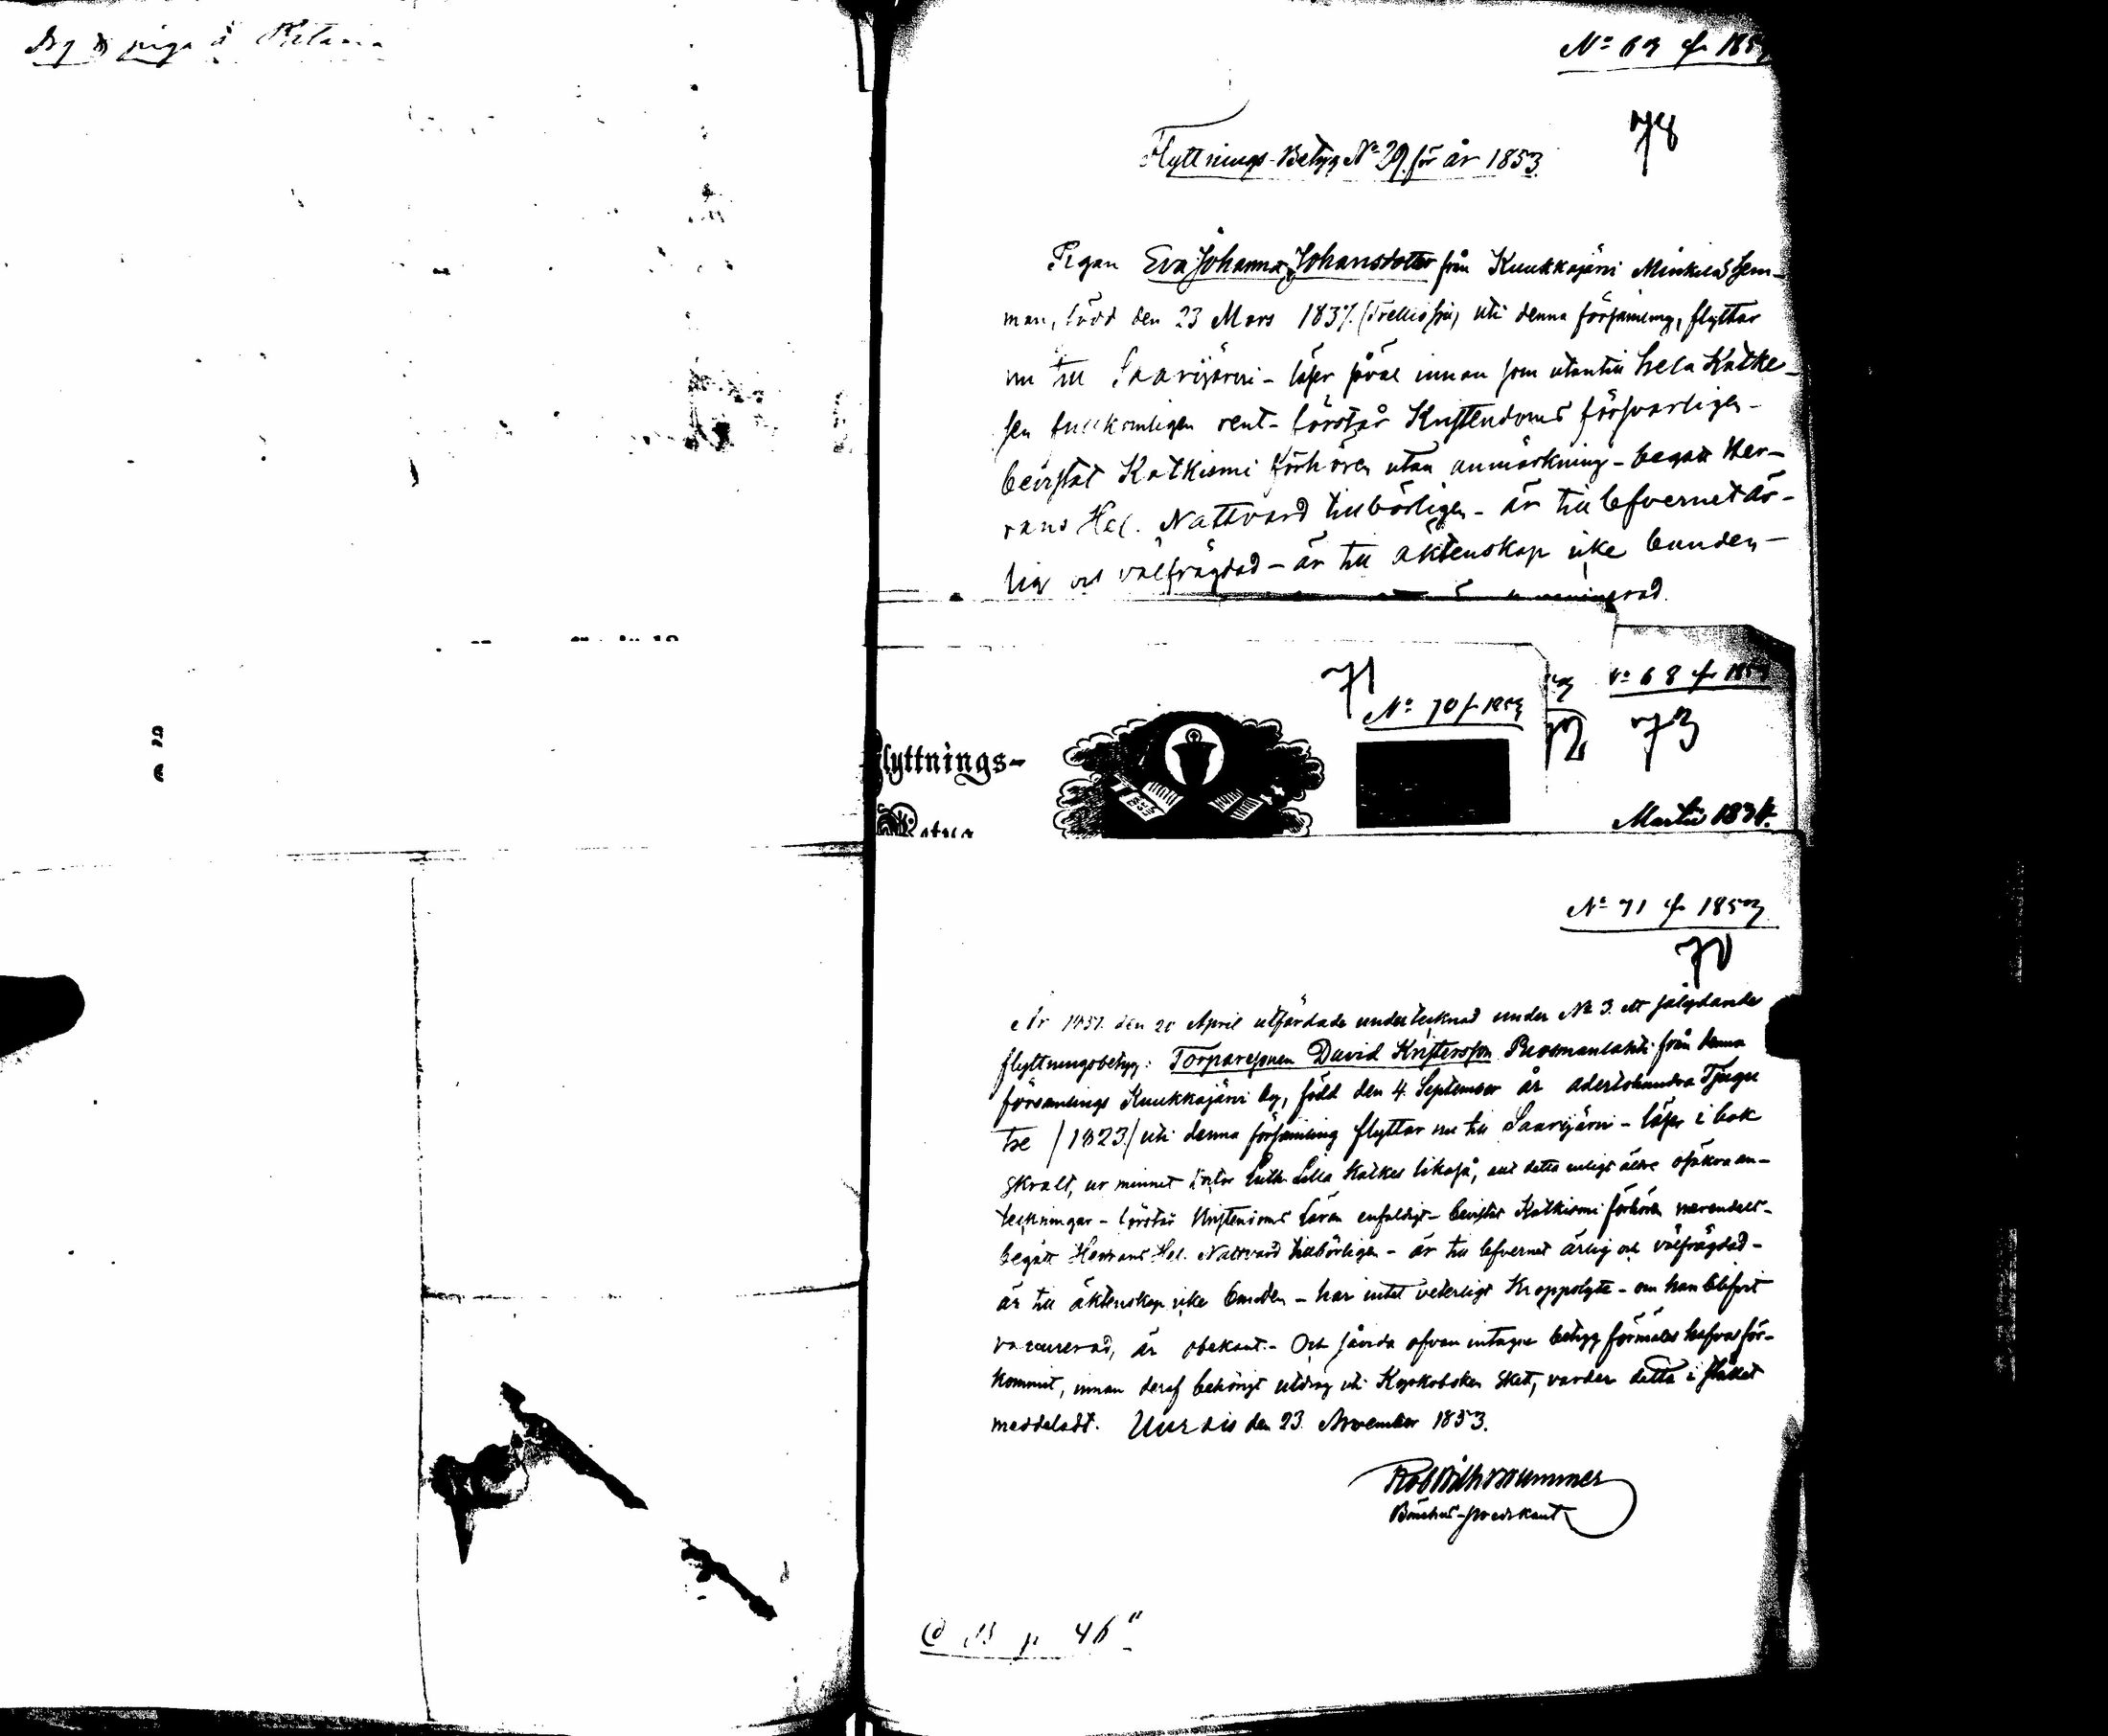 piga å
No 63 f 1853
78
Flyttnings-Betyg No 29 för år 1853.
Pigan Eva Johanna Johansdotter från Kuukkajärvi Minkilä hem-
man, född den 23 Mars 1837. uti denna församling, flyttar
nu till Saarijärvi - läser såväl innan som utantill hela Katke-
sen fullkomligen rent - förstår Kristendoms försvarligen -
bevistat Katkismi förhören utan anmärkning - begått Her-
rans Hel. Nattvard tillbörligen - är till lefvernet är-
lig och välfrägdad - är till äktenskap icke bunden -
71
No 70 f 1853
72
No 68 f 1853
73
Flyttnings-
Betyg
Martii 1834.
No 71 f 1853
70
År 1851. den 20 April utfärdade undertecknad under No 3. ett sålydande
flyttningsbetyg: Torparesonen David Kristersson från denna
församlings Kuukkajärvi by, född den 4. September år adertonhundra Tjugu
tre /1823/ uti denna församling flyttar nu till Saarijärvi - läser i bok
skralt, ur minnet Luth. Lilla Katkes likaså, allt detta enligt äldre osäkra an-
teckningar - förstår Kristendoms Läran enfaldigt - bevistat Katkismi förhören
begått Herrans Hel. Nattvard tillbörligen - är till lefvernet ärlig och välfrägdad -
är till äktenskap icke bunden - har intet veterligt Kroppslyte - om han blifvit
vaccinerad, är obekant. - Och såvida ofvan intagne betyg förmäles hafva för-
kommit, innan deraf behörigt utdrag uti Kyrkoboken skett, varder detta i stället
meddeladt. Uurais den 23. November 1853.
Bönehus-predikant
p 46